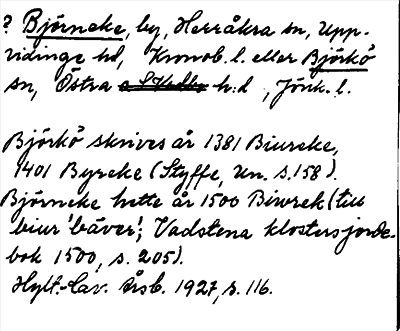 ? Björneke, by, Herråkra sn, Upp-
vidinge hd, Kronob. l. eller Björkö
sn, Östra h:d, Jönk. l.
Björkö skrives år 1381 Biureke,
1401 Byreke (Styffe, Un. s. 158).
Björneke hette år 1500 Biwrek (till
biur 'bäver'; Vadstena klostersjorde-
bok 1500, s. 205).
Hylt.-Cav. årsb. 1927, s. 116.